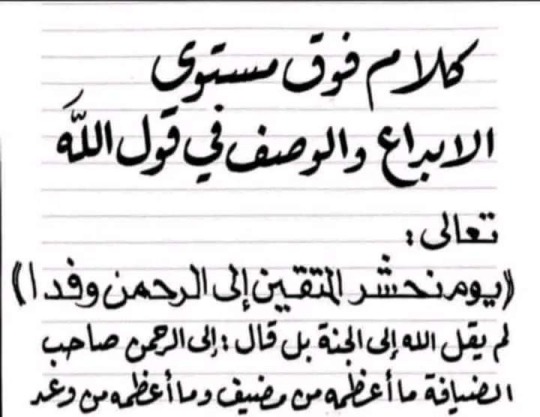 كلام فوق مستوى
الابداع والوصف في قول اللَّه
تعالى :
((يوم نحشر المتقين إلى الرحمن وفدا))
لم يقل الله إلى الجنة بل قال : إلى الرحمن صاحب
الضيافة ما أعظمه من مضيف وما أعظمه من وعد